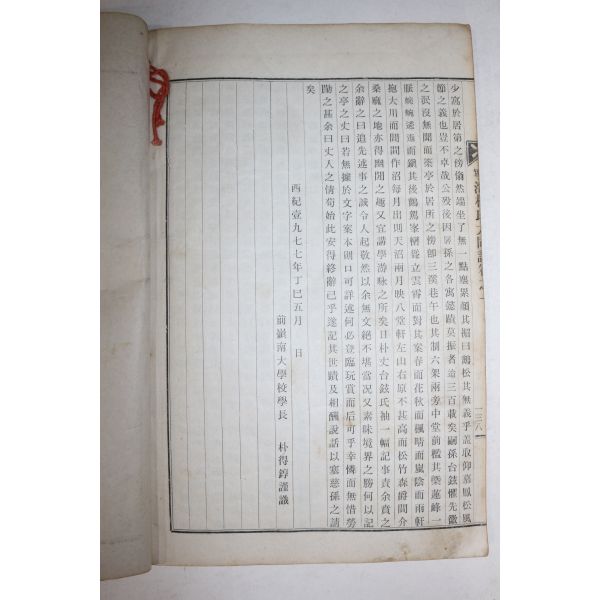 少寓於居第之傍翛然端坐了無一點塵累顔其楣曰鶴松其無義乎盖取仰嘉鳳松風
韻之義也豈不卓哉公歿後因孱孫之各寓懿蹟莫振者逾三百載矣嗣孫台鉉懼先徽
之泯沒無聞而築亭於居所之傍卽三溪巷午也其制六架兩旁中堂前檻其榮蓮峰一
脈蜿蜿逶迤而鎭其後鶴駕峯巒從立雲霄面對其案春而花秋而楓晴而嵐陰而雨軒
抱大川而開闔作沼每月出則天沼兩月映八堂軒左山右原不甚高而松竹森爵間介
桑麻之地亦得幽閒之趣又宜講學游咏之所矣日朴丈台鉉氏袖一幅記事責余賁之
余辭之曰追先述事之誠令人起敬然以余無文絕不堪當况又素昧境界之勝何以記
之亭之丈曰若無據於文字案本則口可詳述何必登臨玩賞而后可乎幸憐而無惜勞
勛之甚余曰丈人之情苟始此安得終辭已乎遂記其世蹟及相酬說話以塞慈孫之請
矣
西紀壹九七七年丁巳五月　日
前嶺南大學校學長　朴得錞謹識
朴氏大同譜卷之一
一三八